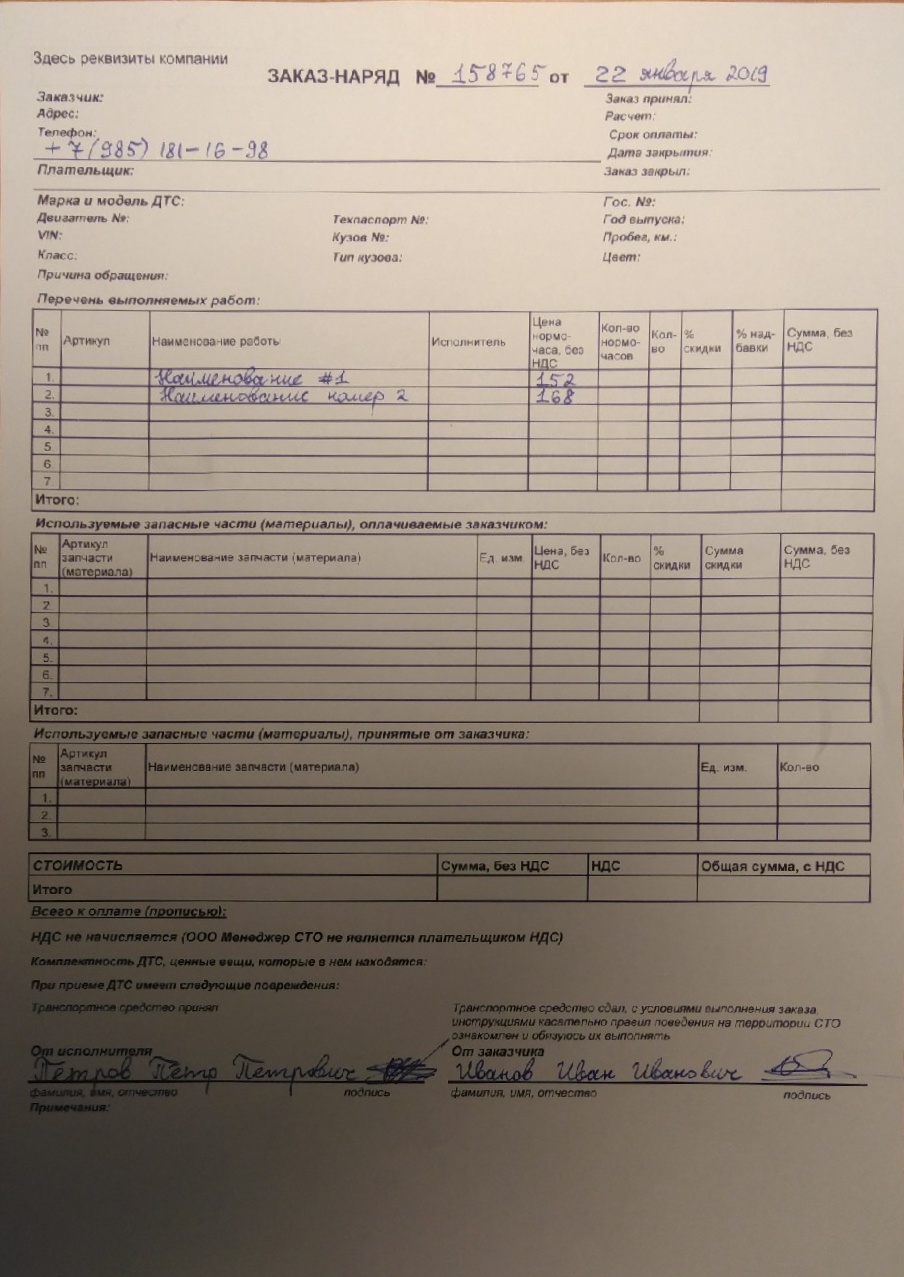 Здесь реквизиты компании
ЗАКАЗ-НАРЯД № 158765 от 22 января 2019
Заказчик: Заказ принял:
Адрес: Расчет:
Телефон: Срок оплаты:
+7(985) 181-16-98 Дата закрытия:
Плательщик: Заказ закрыл:
Марка и модель ДТС: Гос. №:
Двигатель №: Техпаспорт №: Год выпуска:
VIN: Кузов №: Пробег, км.:
Класс: Тип кузова: Цвет:
Причина обращения:
Перечень выполняемых работ:
№ пп Артикул Наименование работы Исполнитель Цена нормо-часа, без НДС Кол-во нормо-часов Кол-во % скидки % над-бавки Сумма, без НДС
1. Наименование #1 152
2. Наименование номер 2 168
3.
4.
5
6.
7
Итого:
Используемые запасные части (материалы), оплачиваемые заказчиком:
№ пп Артикул запчасти (материала) Наименование запчасти (материала) Ед. изм. Цена, без НДС Кол-во % скидки Сумма скидки Сумма, без НДС
1.
2.
3
4.
5.
6.
7.
Итого:
Используемые запасные части (материалы), принятые от заказчика:
№ пп Артикул запчасти (материала) Наименование запчасти (материала) Ед. изм. Кол-во
1.
2.
3.
СТОИМОСТЬ Сумма, без НДС НДС Общая сумма, с НДС
Итого
Всего к оплате (прописью):
НДС не начисляется (ООО Менеджер СТО не является плательщиком НДС)
Комплектность ДТС, ценные вещи, которые в нем находятся:
При приеме ДТС имеет следующие повреждения:
Транспортное средство принял Транспортное средство сдал, с условиями выполнения заказа,
инструкциями касательно правил поведения на территории СТО
ознакомлен и обязуюсь их выполнять
От исполнителя От заказчика
Петров Петр Петрович Иванов Иван Иванович
фамилия, имя, отчество подпись фамилия, имя, отчество подпись
Примечания: